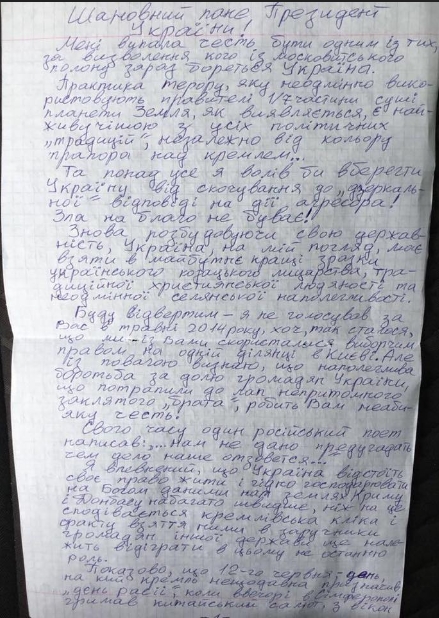 Шановний пане Президент
України,
Мені випала честь бути одним із тих,
за визволення кого із московитського
полону зараз бореться Україна.
Практика терору, яку неодмінно вико-
ристовують правителі 1/7 частини суші
планети Земля, як виявляється, є най-
живучішою з усіх політичних
„традицій", незалежно від кольору
прапора над кремлем...
Та понад усе я волів би вберегти
Україну від скочування до „дзеркаль-
ної" відповіді на дії агресора!
Зла на благо не буває!
Знова розбудовуючи свою держав-
ність, Україна, на мій погляд, має
взяти в майбутнє кращі зразки
українського козацького лицарства, тра-
диційної християнської людяності та
неодмінної селянської наполегливості.
Буду відвертим – я не голосував за
Вас в травні 2014 року, хоч, так сталося,
що ми із Вами скористалися виборчим
правом на одній ділянці в Києві. Але
із повагою визнаю, що наполеглива
боротьба за долю громадян України,
що потрапили до лап непритомного
заклятого „брата", робить Вам неаби-
яку честь!
Свого часу один російський поет
написав: „...нам не дано предугадать
чем дело наше отзовется...
Я впевнений, що Україна відстоїть
своє право жити і гідно господарювати
на Богом даними нам землях Криму
і Донбасу набагато швидше, ніж на це
сподівається кремлівська кліка і
факту взяття ними в заручники
громадян іншої держави ще нале-
жить відіграти в цьому не останню
роль.
Показово, що 12-го червня – день,
на кий кремль нещодавна призначив
„день расії", коли ввечорі в Сімферополі
гримав китайський салют, з вікон